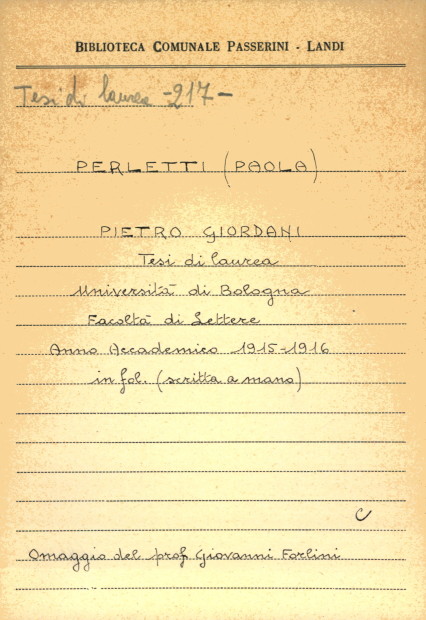 BIBLIOTECA COMUNALE PASSERINI - LANDI
Tesi di laurea -217-
PERLETTI (PAOLA)
PIETRO GIORDANI
Tesi di laurea
Università di Bologna
Facoltà di Lettere
Anno Accademico 1915-1916
in fol. (scritta a mano)
C
Omaggio del prof. Giovanni Forlini